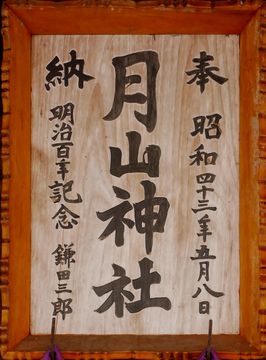 奉 昭和四十三年五月八日
月山神社
納 明治百年記念 鎌田三郎